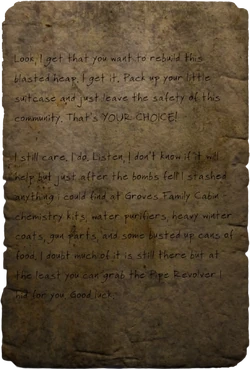 Look, I get that you want to rebuild this
blasted heap, I get it. Pack up your little
suitcase and just leave the safety of this
community. That's YOUR CHOICE!
I still care, I do. Listen, I don't know if it will
help but just after the bombs fell I stashed
anything i could find at Groves Family Cabin
chemistry kits, water purifiers, heavy winter
coats, gun parts, and some busted up cans of
food, I doubt much of it is still there but at
the least you can grab the Pipe Revolver I
hid for you. Good luck